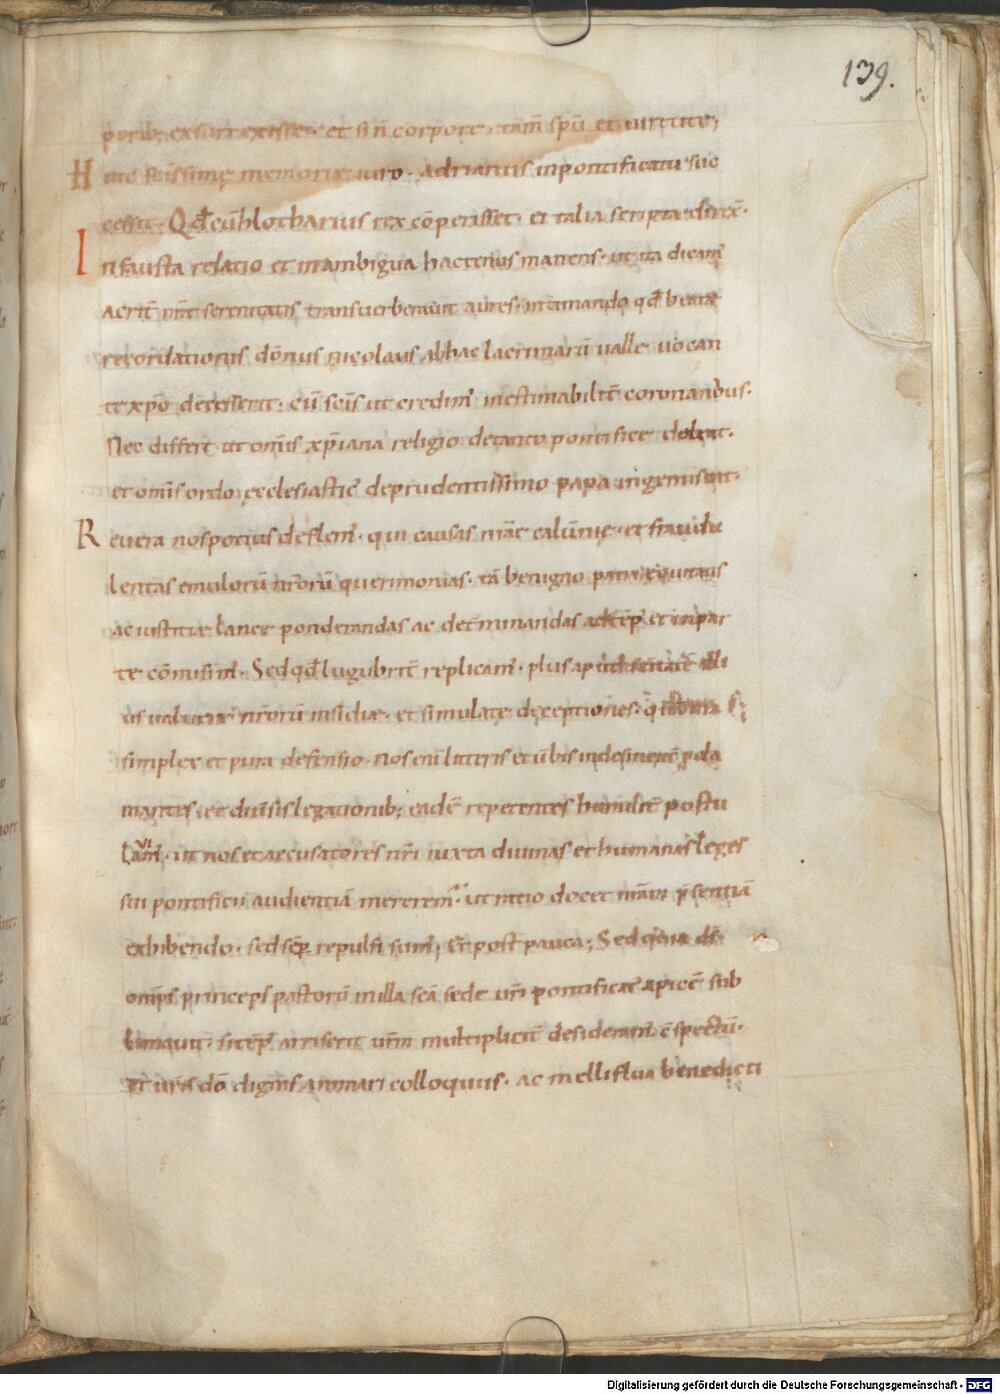 139.
porib; exsurrexisse. et si n̄ corpore. tam̄ spū et uirtute;
Huic sc̄issimę memoriae uiro. adrianus in pontificatu suc
cessit. Qd̄ cū hlotharius rex cōperisset. et talia scripta direx̄.
Infausta relatio et inambigua hactenus manens. ut ita dicam̄
acrit̄ nr̄ae serenitatis transuerberauit aures. intimando qd̄ beatae
recordationis dōnus nicolaus ab hac lacrimarū ualle uocan
te xp̄o decesserit. cū sc̄is ut credim̄ inestimabilit̄ coronandus.
Nec differt ut om̄is xp̄iana religio de tanto pontifice doleat.
et om̄is ordo ęcclesiastic̄ de prudentissimo papa ingemiscat.
Reuera nos potius deflem̄. qui causas nr̄ae calūnię. et fraudu
lentas emulorū nr̄orū querimonias. tā benigno patri equitatis
ac iustitiae lance ponderandas ac det̄minandas
te cōmisim̄. Sed qd̄ lugubrit̄ replicam̄. plus ap
us ualuere nr̄orū insidiae. et simulatę deceptiones.
simplex et pura defensio. Nos eni litteris et ūbis indesinent̄ p̱cla
mantes. et diūsis legationib; eadē repetentes humilit̄ postu
lauim̄. ut nos et accusatores nr̄i iuxta diuinas et humanas leges
sui pontificii audientiā mererem̄. ut ratio docet nr̄am p̄sentiā
exhibendo. sed sēp̱ repulsi sum̄; Et post pauca; Sed quia d̄s
om̄ps princeps pastorū in illa sc̄a sede ur̄i pontificat̄ apicē sub
limauit. sitēp̱ arriserit ur̄m multiplicit̄ desideram̄ cspectū.
Et ur̄is dō dignis ammari colloquiis. ac melliflua benedicti
Digitalisierung gefördert durch die Deutsche Forschungsgemeinschaft - DFG